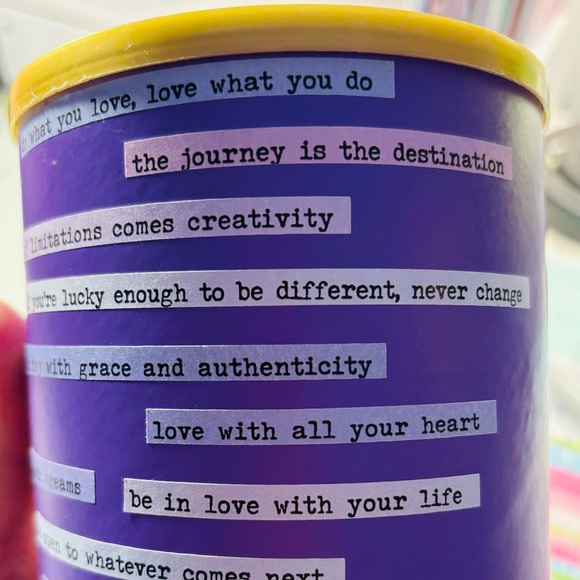 what you love, love what you do
the journey is the destination
limitations comes creativity
you're lucky enough to be different, never change
with grace and authenticity
love with all your heart
dreams
be in love with your life
open to whatever comes next